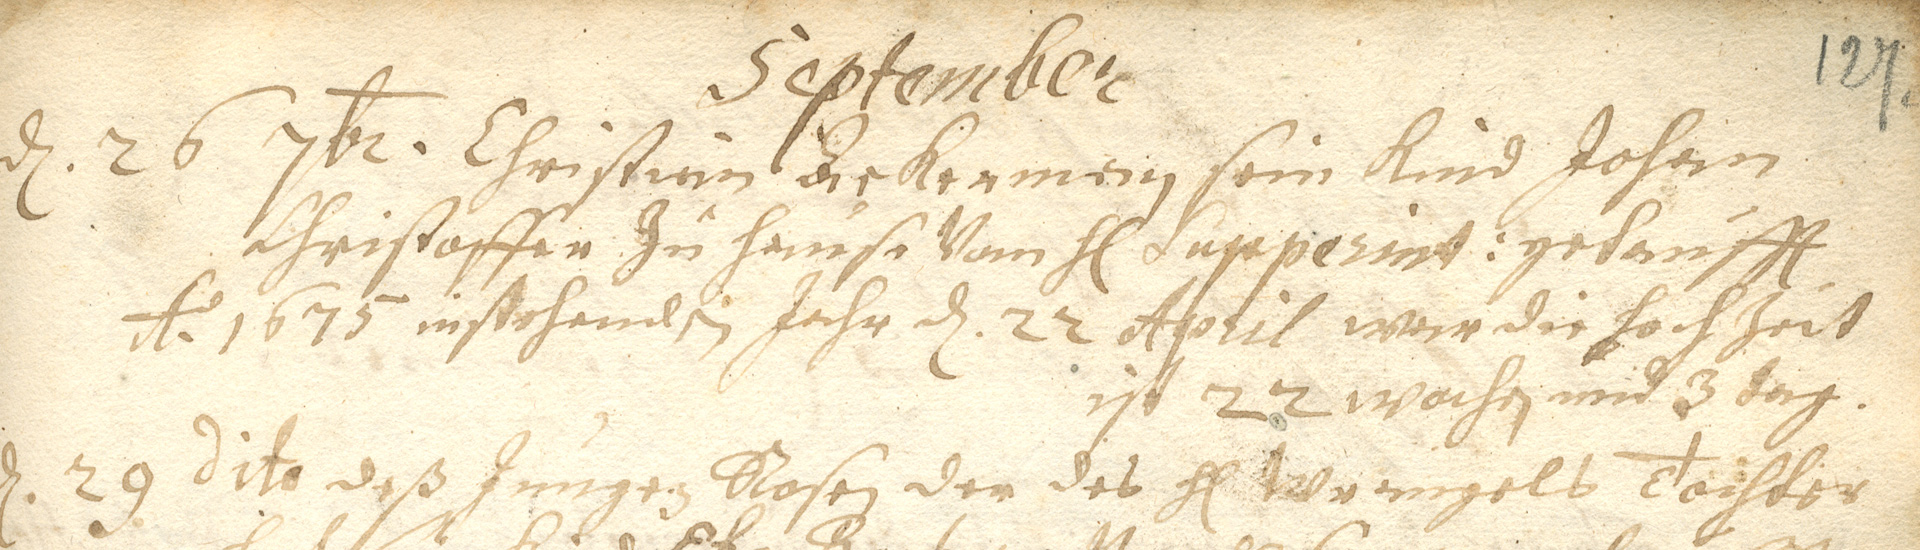 September
127.
d. 26 7br. Christian Ackerman sein Kind Johan
Christoffer Zu hause Vom H Supperint: getaufft
Ao. 1675 instehenden Jahr d. 22 April war die hochzeit
ist 22 wochen und 3 tag.
d. 29 dito deß Jungen Rosen der des H Wrangels Tochter